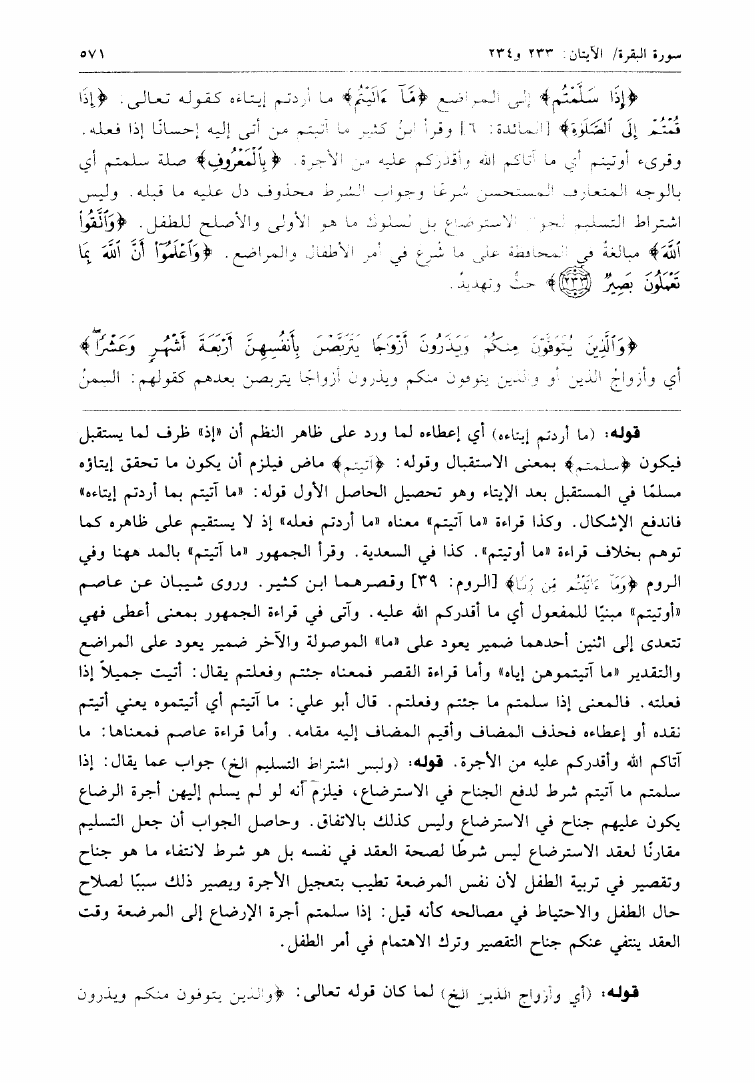 سورة البقرة/ الآيتان: ٢٣٣ و٢٣٤ ٥٧١
﴿إِذَا سَلَّمْتُم﴾ إلى المراضع ﴿مَّآ ءَاتَيْتُم﴾ ما أردتم إيتاءه كقوله تعالى: ﴿إِذَا
قُمْتُمْ إِلَى ٱلصَّلَوٰةِ﴾ [المائدة: ٦] وقرأ ابنُ كثير ما أتيتم من أتى إليه إحسانًا إذا فعله.
وقرىء أوتيتم أي ما آتاكم الله وأقدركم عليه من الأجرة. ﴿بِٱلْمَعْرُوفِ﴾ صلة سلمتم أي
بالوجه المتعارف المستحسن شرعًا وجواب الشرط محذوف دل عليه ما قبله. وليس
اشتراط التسليم لجواز الاسترضاع بل لسلوك ما هو الأولى والأصلح للطفل. ﴿وَٱتَّقُوا۟
ٱللَّهَ﴾ مبالغةٌ في المحافظة على ما شُرع في أمر الأطفال والمراضع. ﴿وَٱعْلَمُوٓا۟ أَنَّ ٱللَّهَ بِمَا
تَعْمَلُونَ بَصِيرٌ ٢٣٣﴾ حثٌ وتهديدٌ.
﴿وَٱلَّذِينَ يُتَوَفَّوْنَ مِنكُمْ وَيَذَرُونَ أَزْوَٰجًا يَتَرَبَّصْنَ بِأَنفُسِهِنَّ أَرْبَعَةَ أَشْهُرٍ وَعَشْرًا ۖ﴾
أي وأزواجُ الذين أو والذين يتوفون منكم ويذرون أزواجًا يتربصن بعدهم كقولهم: السمنُ
قوله: (ما أردتم إيتاءه) أي إعطاءه لما ورد على ظاهر النظم أن «إذ» ظرف لما يستقبل
فيكون ﴿سلمتم﴾ بمعنى الاستقبال وقوله: ﴿آتيتم﴾ ماض فيلزم أن يكون ما تحقق إيتاؤه
مسلمًا في المستقبل بعد الإيتاء وهو تحصيل الحاصل الأول قوله: «ما آتيتم بما أردتم إيتاءه»
فاندفع الإشكال. وكذا قراءة «ما أتيتم» معناه «ما أردتم فعله» إذ لا يستقيم على ظاهره كما
توهم بخلاف قراءة «ما أوتيتم». كذا في السعدية. وقرأ الجمهور «ما آتيتم» بالمد ههنا وفي
الروم ﴿وَمَآ ءَاتَيْتُم مِّن رِّبًا﴾ [الروم: ٣٩] وقصرهما ابن كثير. وروى شيبان عن عاصم
«أوتيتم» مبنيًا للمفعول أي ما أقدركم الله عليه. وآتى في قراءة الجمهور بمعنى أعطى فهي
تتعدى إلى اثنين أحدهما ضمير يعود على «ما» الموصولة والآخر ضمير يعود على المراضع
والتقدير «ما آتيتموهن إياه» وأما قراءة القصر فمعناه جئتم وفعلتم يقال: أتيت جميلاً إذا
فعلته. فالمعنى إذا سلمتم ما جئتم وفعلتم. قال أبو علي: ما آتيتم أي أتيتموه يعني أتيتم
نقده أو إعطاءه فحذف المضاف وأقيم المضاف إليه مقامه. وأما قراءة عاصم فمعناها: ما
آتاكم الله وأقدركم عليه من الأجرة. قوله: (وليس اشتراط التسليم الخ) جواب عما يقال: إذا
سلمتم ما آتيتم شرط لدفع الجناح في الاسترضاع، فيلزم أنه لو لم يسلم إليهن أجرة الرضاع
يكون عليهم جناح في الاسترضاع وليس كذلك بالاتفاق. وحاصل الجواب أن جعل التسليم
مقارنًا لعقد الاسترضاع ليس شرطًا لصحة العقد في نفسه بل هو شرط لانتفاء ما هو جناح
وتقصير في تربية الطفل لأن نفس المرضعة تطيب بتعجيل الأجرة ويصير ذلك سببًا لصلاح
حال الطفل والاحتياط في مصالحه كأنه قيل: إذا سلمتم أجرة الإرضاع إلى المرضعة وقت
العقد ينتفي عنكم جناح التقصير وترك الاهتمام في أمر الطفل.
قوله: (أي وأزواج الذين الخ) لما كان قوله تعالى: ﴿والذين يتوفون منكم ويذرون